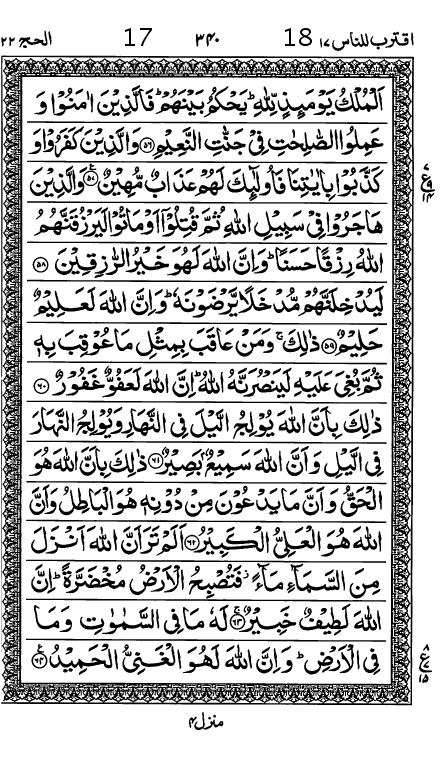 اقترب للناس ١٧ 18 ٣٤٠ 17 الحج ٢٢
اَلْمُلْكُ يَوْمَىِٕذٍ لِّلّٰهِؕ یَحْكُمُ بَیْنَهُمْؕ فَالَّذِیْنَ اٰمَنُوْا وَ
عَمِلُوا الصّٰلِحٰتِ فِیْ جَنّٰتِ النَّعِیْمِ ﴿۵۶﴾ وَالَّذِیْنَ كَفَرُوْا وَ
كَذَّبُوْا بِاٰیٰتِنَا فَاُولٰٓىِٕكَ لَهُمْ عَذَابٌ مُّهِیْنٌ ﴿۵۷﴾ وَالَّذِیْنَ
هَاجَرُوْا فِیْ سَبِیْلِ اللّٰهِ ثُمَّ قُتِلُوْۤا اَوْ مَاتُوْا لَیَرْزُقَنَّهُمُ
اللّٰهُ رِزْقًا حَسَنًاؕ وَاِنَّ اللّٰهَ لَهُوَ خَیْرُ الرّٰزِقِیْنَ ﴿۵۸﴾
لَیُدْخِلَنَّهُمْ مُّدْخَلًا یَّرْضَوْنَهٗؕ وَاِنَّ اللّٰهَ لَعَلِیْمٌ
حَلِیْمٌ ﴿۵۹﴾ ذٰلِكَۚ وَمَنْ عَاقَبَ بِمِثْلِ مَا عُوْقِبَ بِهٖ
ثُمَّ بُغِیَ عَلَیْهِ لَیَنْصُرَنَّهُ اللّٰهُؕ اِنَّ اللّٰهَ لَعَفُوٌّ غَفُوْرٌ ﴿۶۰﴾
ذٰلِكَ بِاَنَّ اللّٰهَ یُوْلِجُ الَّیْلَ فِی النَّهَارِ وَیُوْلِجُ النَّهَارَ
فِی الَّیْلِ وَاَنَّ اللّٰهَ سَمِیْعٌۢ بَصِیْرٌ ﴿۶۱﴾ ذٰلِكَ بِاَنَّ اللّٰهَ هُوَ
الْحَقُّ وَاَنَّ مَا یَدْعُوْنَ مِنْ دُوْنِهٖ هُوَ الْبَاطِلُ وَاَنَّ
اللّٰهَ هُوَ الْعَلِیُّ الْكَبِیْرُ ﴿۶۲﴾ اَلَمْ تَرَ اَنَّ اللّٰهَ اَنْزَلَ
مِنَ السَّمَآءِ مَآءً٘ فَتُصْبِحُ الْاَرْضُ مُخْضَرَّةًؕ اِنَّ
اللّٰهَ لَطِیْفٌ خَبِیْرٌ ﴿۶۳﴾ لَهٗ مَا فِی السَّمٰوٰتِ وَمَا
فِی الْاَرْضِؕ وَاِنَّ اللّٰهَ لَهُوَ الْغَنِیُّ الْحَمِیْدُ ﴿۶۴﴾
منزل ۴